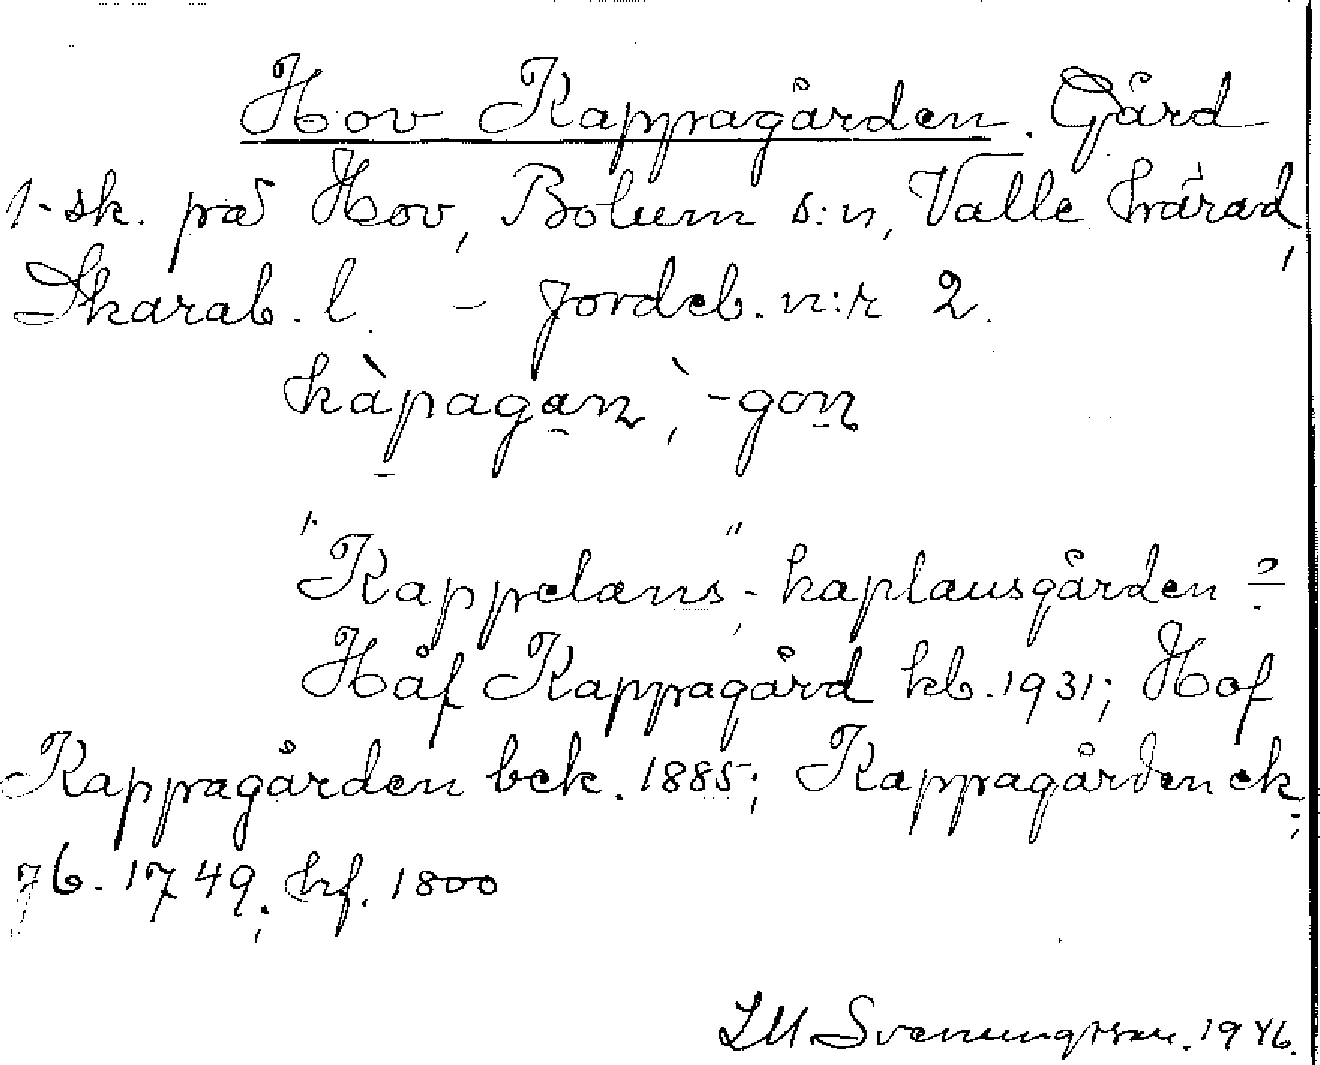 Hov Kappagården. Gård
1-sk. på Hov, Bolum s:n, Valle härad,
Skarab. l. - Jordeb. n:r 2.
kàpagan, `-gon
"Kappelans"-, kaplansgården?
Håf Kappagård kb. 1931; Hof
Kappagården bek. 1885; Kappagården ek.
jb. 1749; hf. 1800
LM Svenungsson. 1946.